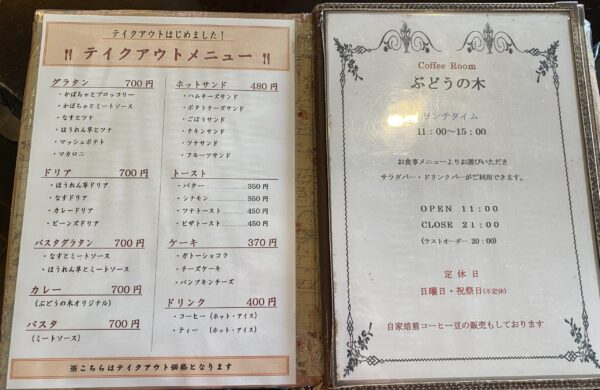 テイクアウトはじめました!
テイクアウトメニュー
グラタン 700円
・かぼちゃとブロッコリー
・かぼちゃとミートソース
・なすとツナ
・ほうれん草とツナ
・マッシュポテト
・マカロニ
ドリア 700円
・ほうれん草ドリア
・なすドリア
・カレードリア
・ビーンズドリア
パスタグラタン 700円
・なすとミートソース
・ほうれん草とミートソース
カレー 700円
(ぶどうの木オリジナル)
パスタ 700円
(ミートソース)
ホットサンド 480円
・ハムチーズサンド
・ポテトチーズサンド
・ごぼうサンド
・チキンサンド
・ツナサンド
・フルーツサンド
トースト
・バター 350円
・シナモン 350円
・ツナトースト 450円
・ピザトースト 450円
ケーキ 370円
・ガトーショコラ
・チーズケーキ
・パンプキンチーズ
ドリンク 400円
・コーヒー (ホット・アイス)
・ティー (ホット・アイス)
※こちらはテイクアウト価格となります
Coffee Room
ぶどうの木
ランチタイム
11:00~15:00
お食事メニューよりお選びいただき
サラダバー・ドリンクバーがご利用できます。
OPEN 11:00
CLOSE 21:00
(ラストオーダー 20:00)
定休日
日曜日・祝祭日(不定休)
自家焙煎コーヒー豆の販売もしております